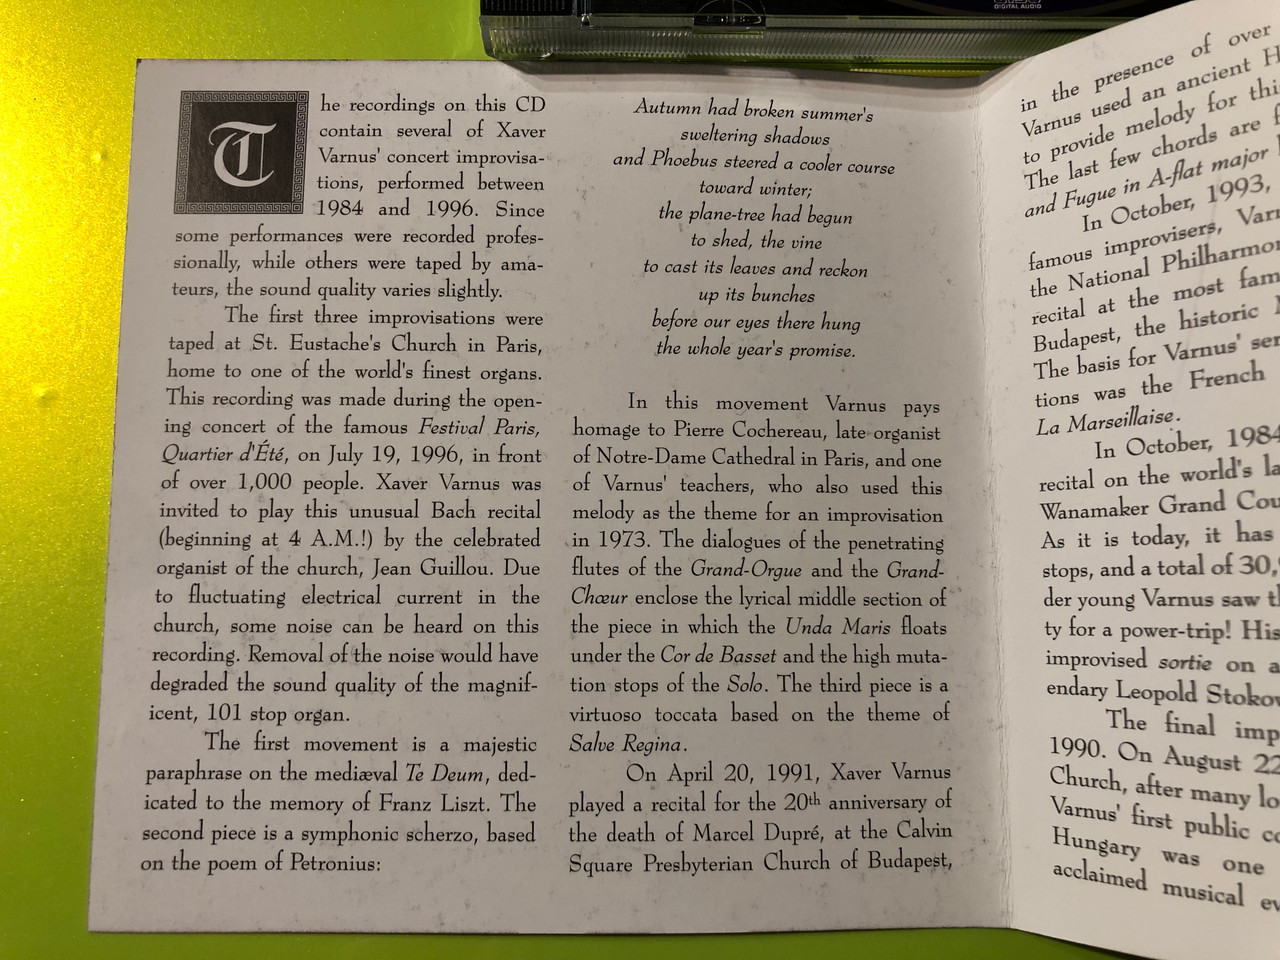 DIGITAL AUDIO
The recordings on this CD
contain several of Xaver
Varnus' concert improvisa-
tions, performed between
1984 and 1996. Since
some performances were recorded profes-
sionally, while others were taped by ama-
teurs, the sound quality varies slightly.
The first three improvisations were
taped at St. Eustache's Church in Paris,
home to one of the world's finest organs.
This recording was made during the open-
ing concert of the famous Festival Paris,
Quartier d'Été, on July 19, 1996, in front
of over 1,000 people. Xaver Varnus was
invited to play this unusual Bach recital
(beginning at 4 A.M.!) by the celebrated
organist of the church, Jean Guillou. Due
to fluctuating electrical current in the
church, some noise can be heard on this
recording. Removal of the noise would have
degraded the sound quality of the magnif-
icent, 101 stop organ.
The first movement is a majestic
paraphrase on the mediæval Te Deum, ded-
icated to the memory of Franz Liszt. The
second piece is a symphonic scherzo, based
on the poem of Petronius:
Autumn had broken summer's
sweltering shadows
and Phoebus steered a cooler course
toward winter;
the plane-tree had begun
to shed, the vine
to cast its leaves and reckon
up its bunches
before our eyes there hung
the whole year's promise.
In this movement Varnus pays
homage to Pierre Cochereau, late organist
of Notre-Dame Cathedral in Paris, and one
of Varnus' teachers, who also used this
melody as the theme for an improvisation
in 1973. The dialogues of the penetrating
flutes of the Grand-Orgue and the Grand-
Chœur enclose the lyrical middle section of
the piece in which the Unda Maris floats
under the Cor de Basset and the high muta-
tion stops of the Solo. The third piece is a
virtuoso toccata based on the theme of
Salve Regina.
On April 20, 1991, Xaver Varnus
played a recital for the 20th anniversary of
the death of Marcel Dupré, at the Calvin
Square Presbyterian Church of Budapest,
in the presence of over
Varnus used an ancient H
to provide melody for thi
The last few chords are f
and Fugue in A-flat major
In October, 1993,
famous improvisers, Varn
the National Philharmon
recital at the most fam
Budapest, the historic
The basis for Varnus' ser
tions was the French
La Marseillaise.
In October, 1984
recital on the world's la
Wanamaker Grand Cou
As it is today, it has
stops, and a total of 30,
der young Varnus saw t
ty for a power-trip! His
improvised sortie on a
endary Leopold Stokov
The final imp
1990. On August 22
Church, after many lo
Varnus' first public co
Hungary was one
acclaimed musical ev